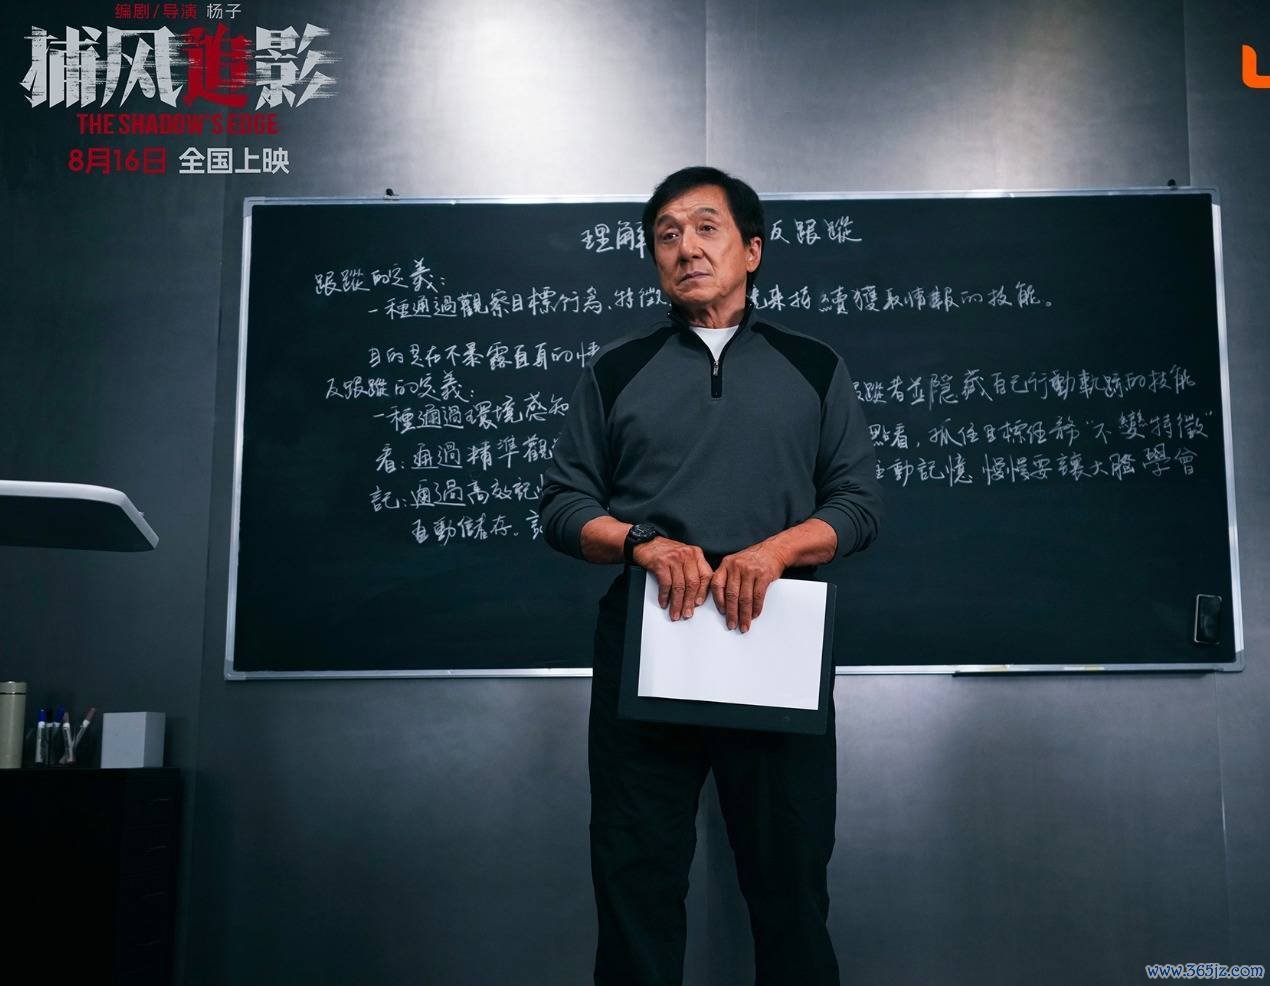 编剧/导演 杨子
捕风追影
THE SHADOW'S EDGE
8月16日 全国上映
理解 反跟蹤
跟蹤的定義：
一種通過觀察目標行為、特徵 來持續獲取情報的技能。
目的是在不暴露自身的情
反跟蹤的定義：
一種通過環境感知 跟蹤者並隱藏自己行動軌跡的技能
看：通過精準觀 點看，抓住目標任務"不變特徵"
記：通過高效記 主動記憶 慢慢要讓大腦學會
自動儲存。
www.365jz.com